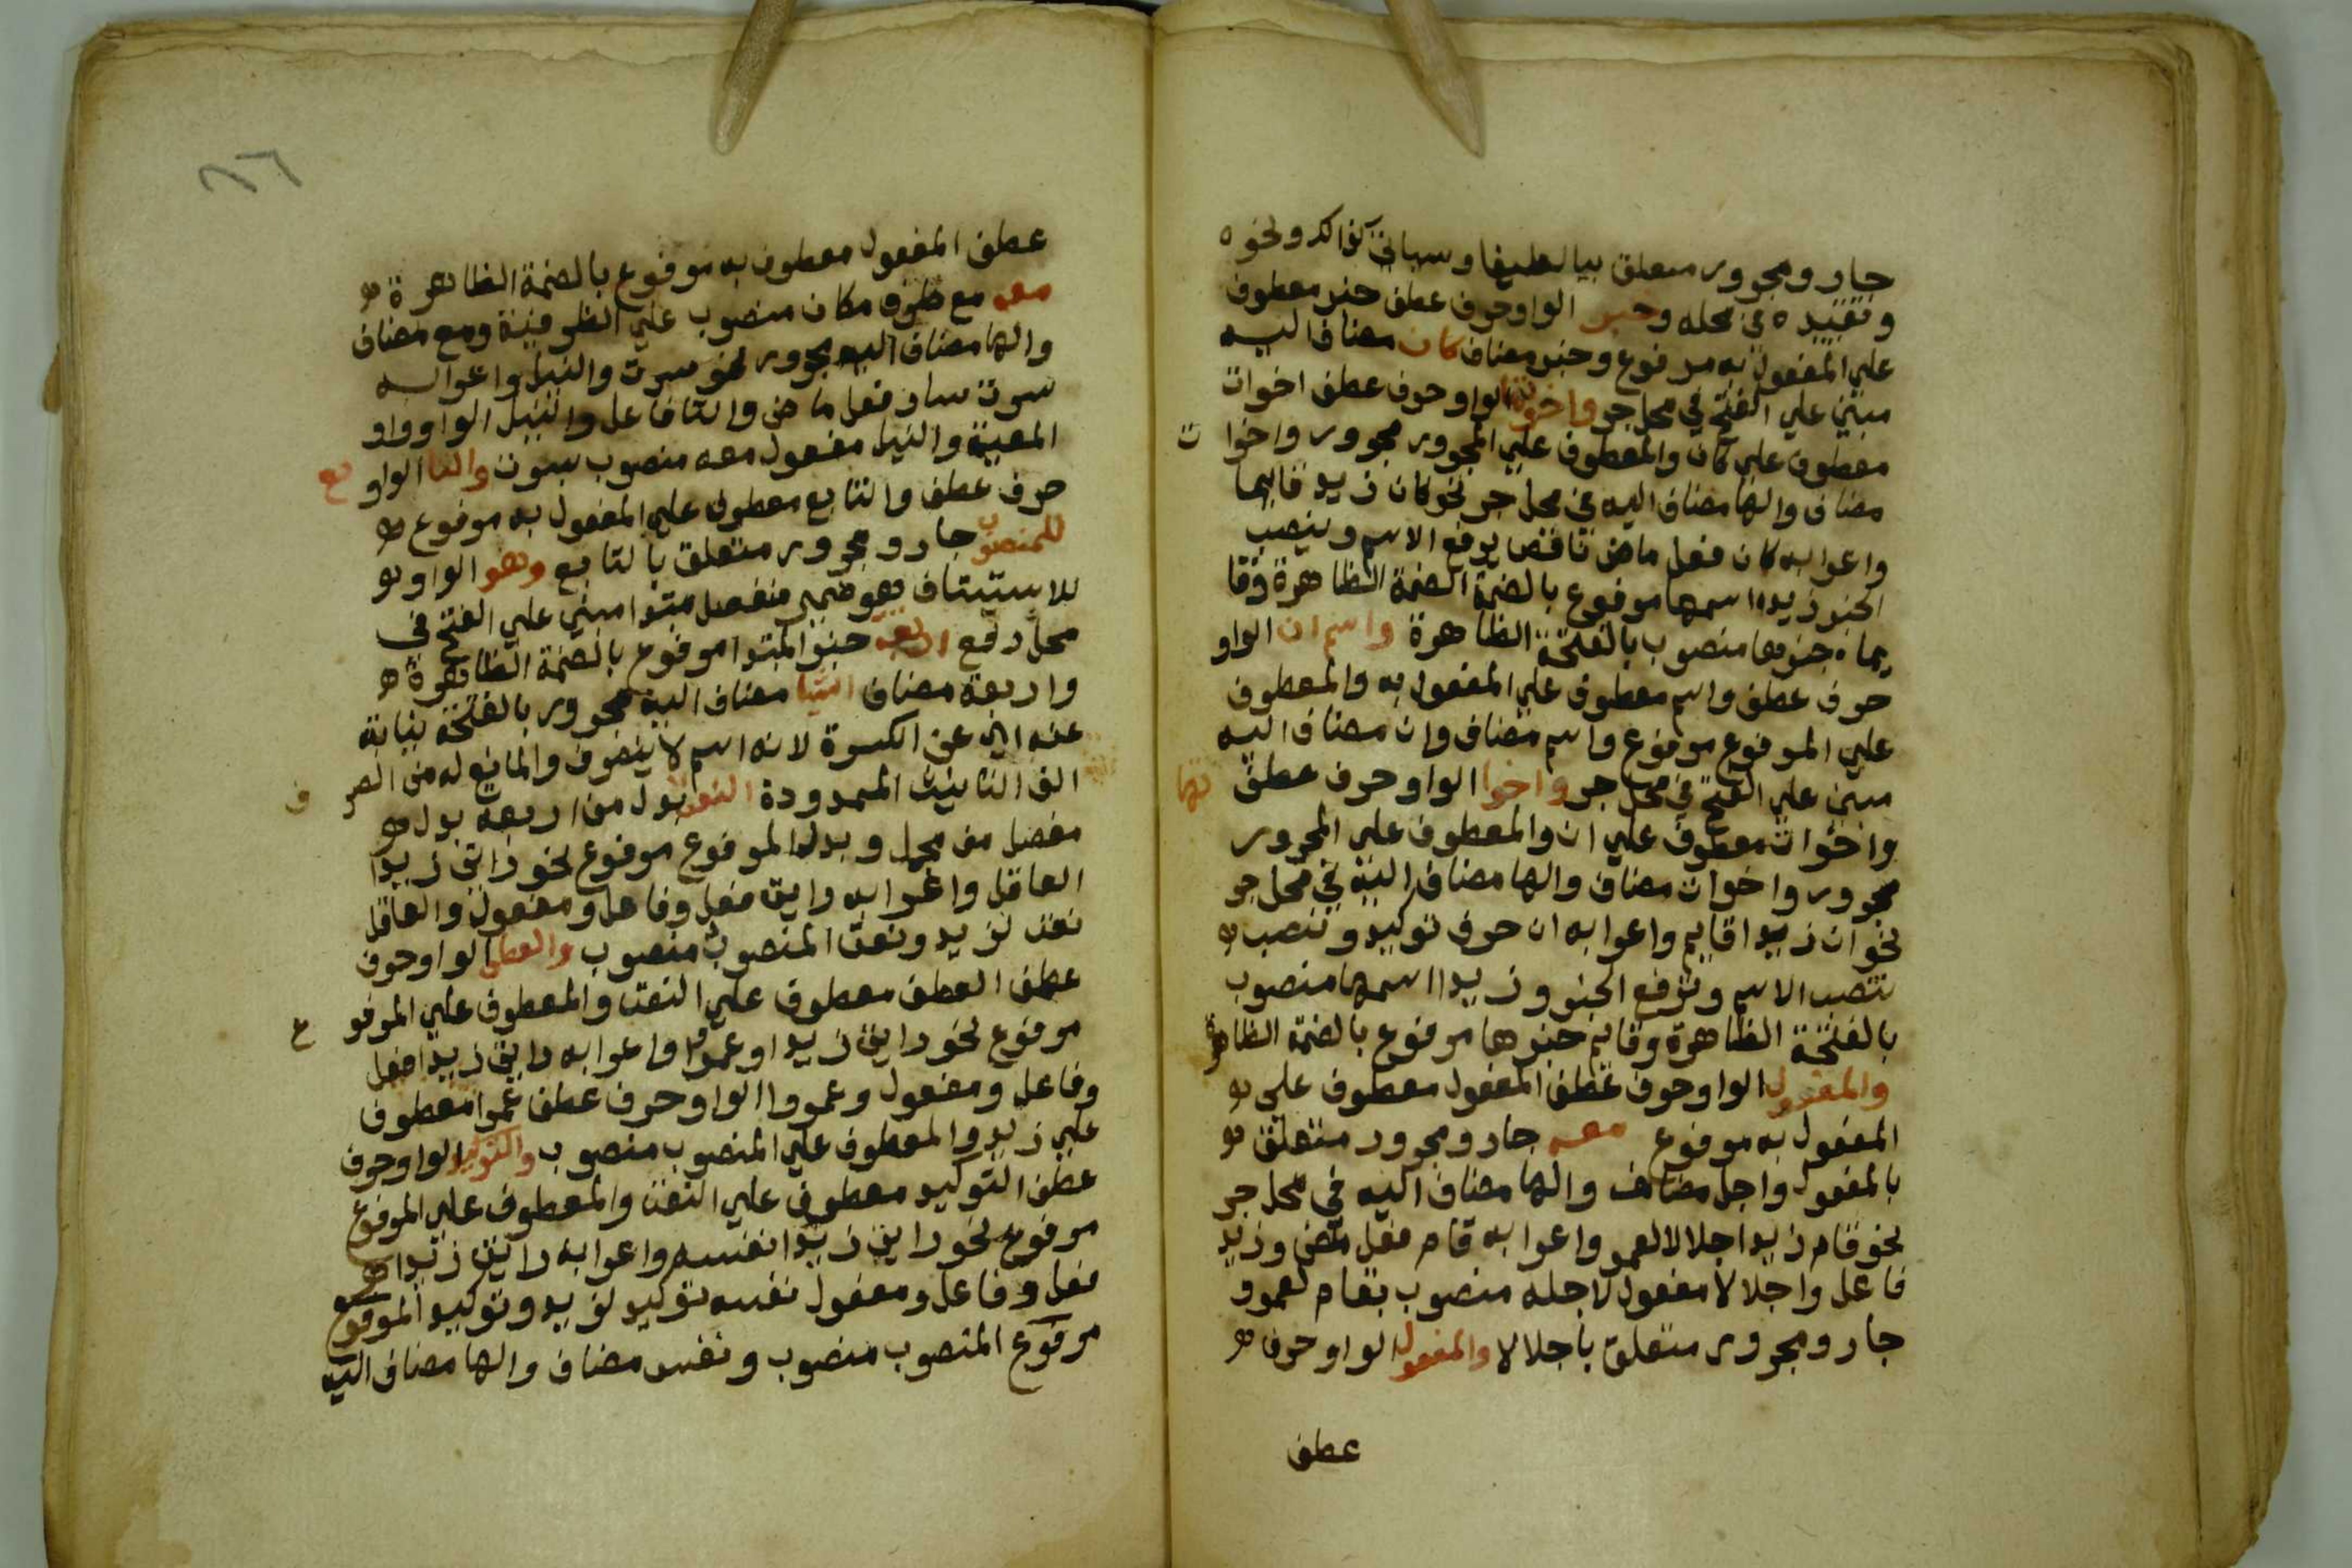 جار ومجرور متعلق بيا لطيفا وسياتي كذالك ونحوه
وتقييده في محله وخبر الواو حرف عطف خبر معطوف
علي المفعول به مرفوع وخبر مضاف كان مضاف اليه
مبني علي الفتح في محل جر واخواتها الواو حرف عطف اخوات
معطوف علي كان والمعطوف علي المجرور مجرور واخوا ت
مضاف والها مضاف اليه في محل جر نحو كان زيد قايما
واعرابه كان فعل ماض ناقص يرفع الاسم وينصب
الخبر زيد اسمها مرفوع بالضمة الضمة الظاهرة وقا
يما خبرها منصوب بالفتحة الظاهرة واسم ان الواو
حرف عطف واسم معطوف علي المفعول به والمعطوف
علي المرفوع مرفوع واسم مضاف وان مضاف اليه
مبني علي الفتح في محل جر واخوا تها الواو حرف عطف
واخوات معطوف علي ان والمعطوف علي المجرور
مجرور واخوات مضاف والها مضاف اليه في محل جر
نحو ان زيدا قايم واعرابه ان حرف توكيد وتنصب
تنصب الاسم وترفع الخبر وزيدا اسمها منصوب
بالفتحة الظاهرة وقايم خبرها مرفوع بالضمة الظاهرة
والمفعول الواو حرف عطف المفعول معطوف علي
المفعول به مرفوع معه جار ومجرور متعلق
بالمفعول واجل مضاف والها مضاف اليه في محل جر
نحو قام زيد اجلالا لعمرو واعرابه قام فعل ماض وزيد
فاعل واجلالا مفعول لاجله منصوب بقام لعمرو
جار ومجرور متعلق باجلالا والمفعول الواو حرف
عطف
٨٦
عطف المفعول معطوف به مرفوع بالضمة الظاهرة
معه مع ظرف مكان منصوب علي الظرفية ومع مضاف
والها مضاف اليه مجرور نحو سرت والنيل واعرابه
سرت سار فعل ماض والتا فاعل والنيل الواو واو
المعية والنيل مفعول معه منصوب بسرت والتا بع الواو
حرف عطف والتابع معطوف علي المفعول به مرفوع
للمنصوب جار ومجرور متعلق بالتابع وهو الواو
للاستيناف هو ضمير منفصل مبتدا مبني علي الفتح في
محل رفع اربعة خبر المبتدا مرفوع بالضمة الظاهرة
واربعة مضاف اشيا مضاف اليه مجرور بالفتحة نيابة
عنه اي عن الكسرة لانه اسم لا ينصرف والمانع له من الصر ف
الف التانيث الممدودة النعت بدل من اربعة بدل
مفصل من مجمل وبدل المرفوع مرفوع نحو رايت زيدا
العاقل واعرابه رايت فعل وفاعل ومفعول والعاقل
نعت لزيد ونعت المنصوب منصوب والعطف الواو حرف
عطف العطف معطوف علي النعت والمعطوف علي المرفو ع
مرفوع نحو رايت زيدا وعمروا واعرابه رايت زيدا فعل
وفاعل ومفعول وعمروا الواو حرف عطف عمروا معطوف
علي زيد والمعطوف علي المنصوب منصوب والتوكيد الواو حرف
عطف التوكيد معطوف علي النعت والمعطوف علي المرفوع
مرفوع نحو رايت زيدا نفسه واعرابه رايت زيدا
فعل وفاعل ومفعول نفسه توكيد لزيد وتوكيد المرفوع
مرفوع المنصوب منصوب ونفس مضاف والها مضاف اليه